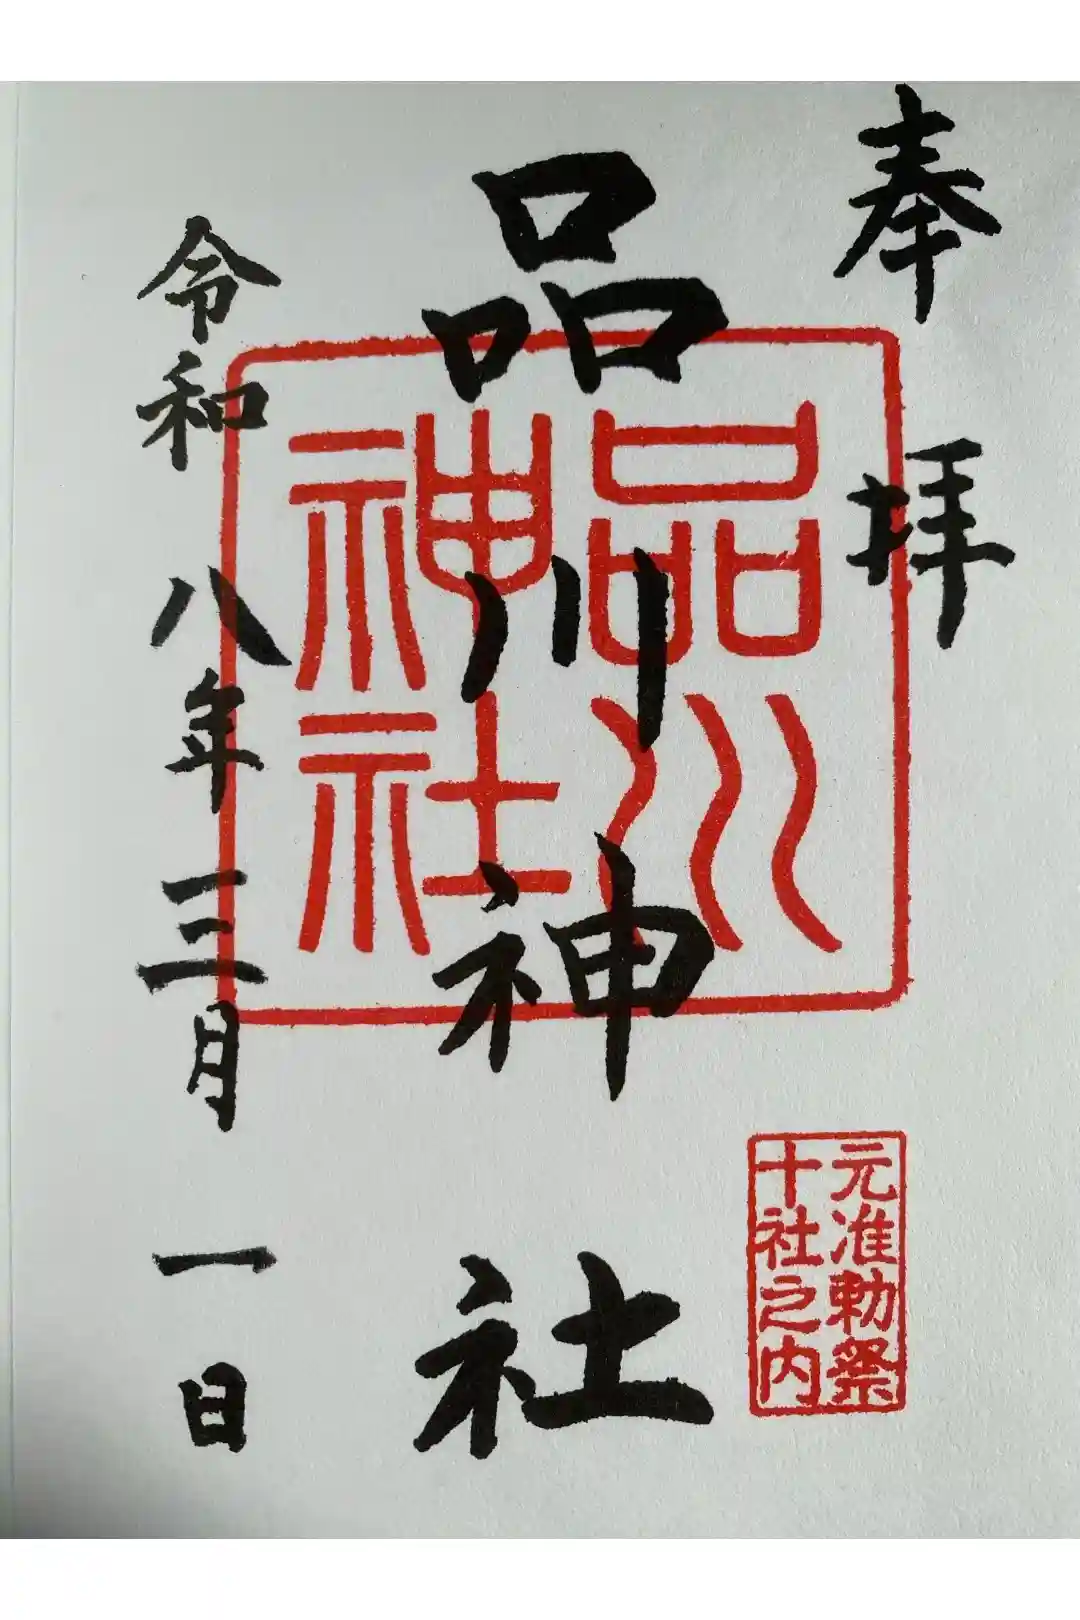 奉拝
元准勅祭
十社之内
品川神社
品川
神社
令和八年三月一日